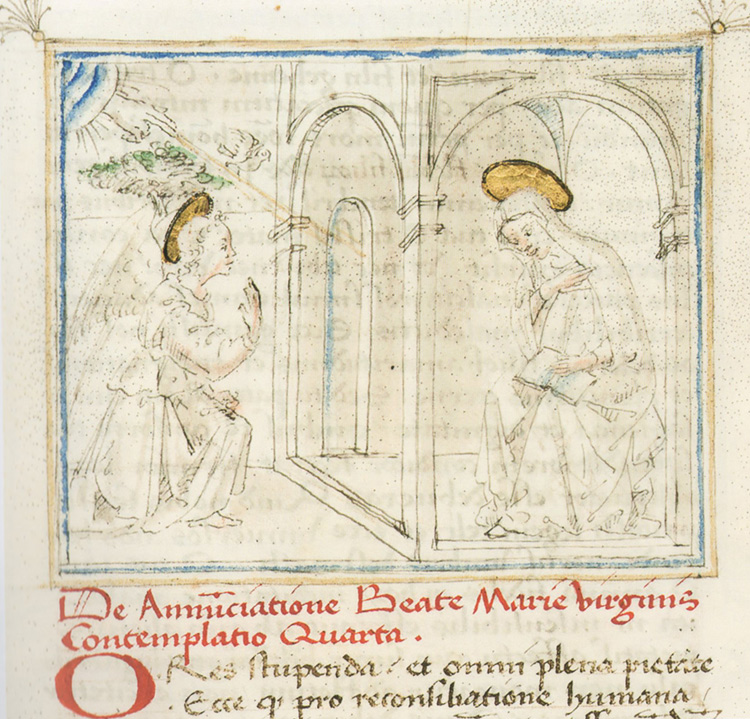 De Annūciatione Beate Marie virginis
Contemplatio Quarta .
O Res stupenda et omni plena pietate
Ecce q pro reconsiliatione humana